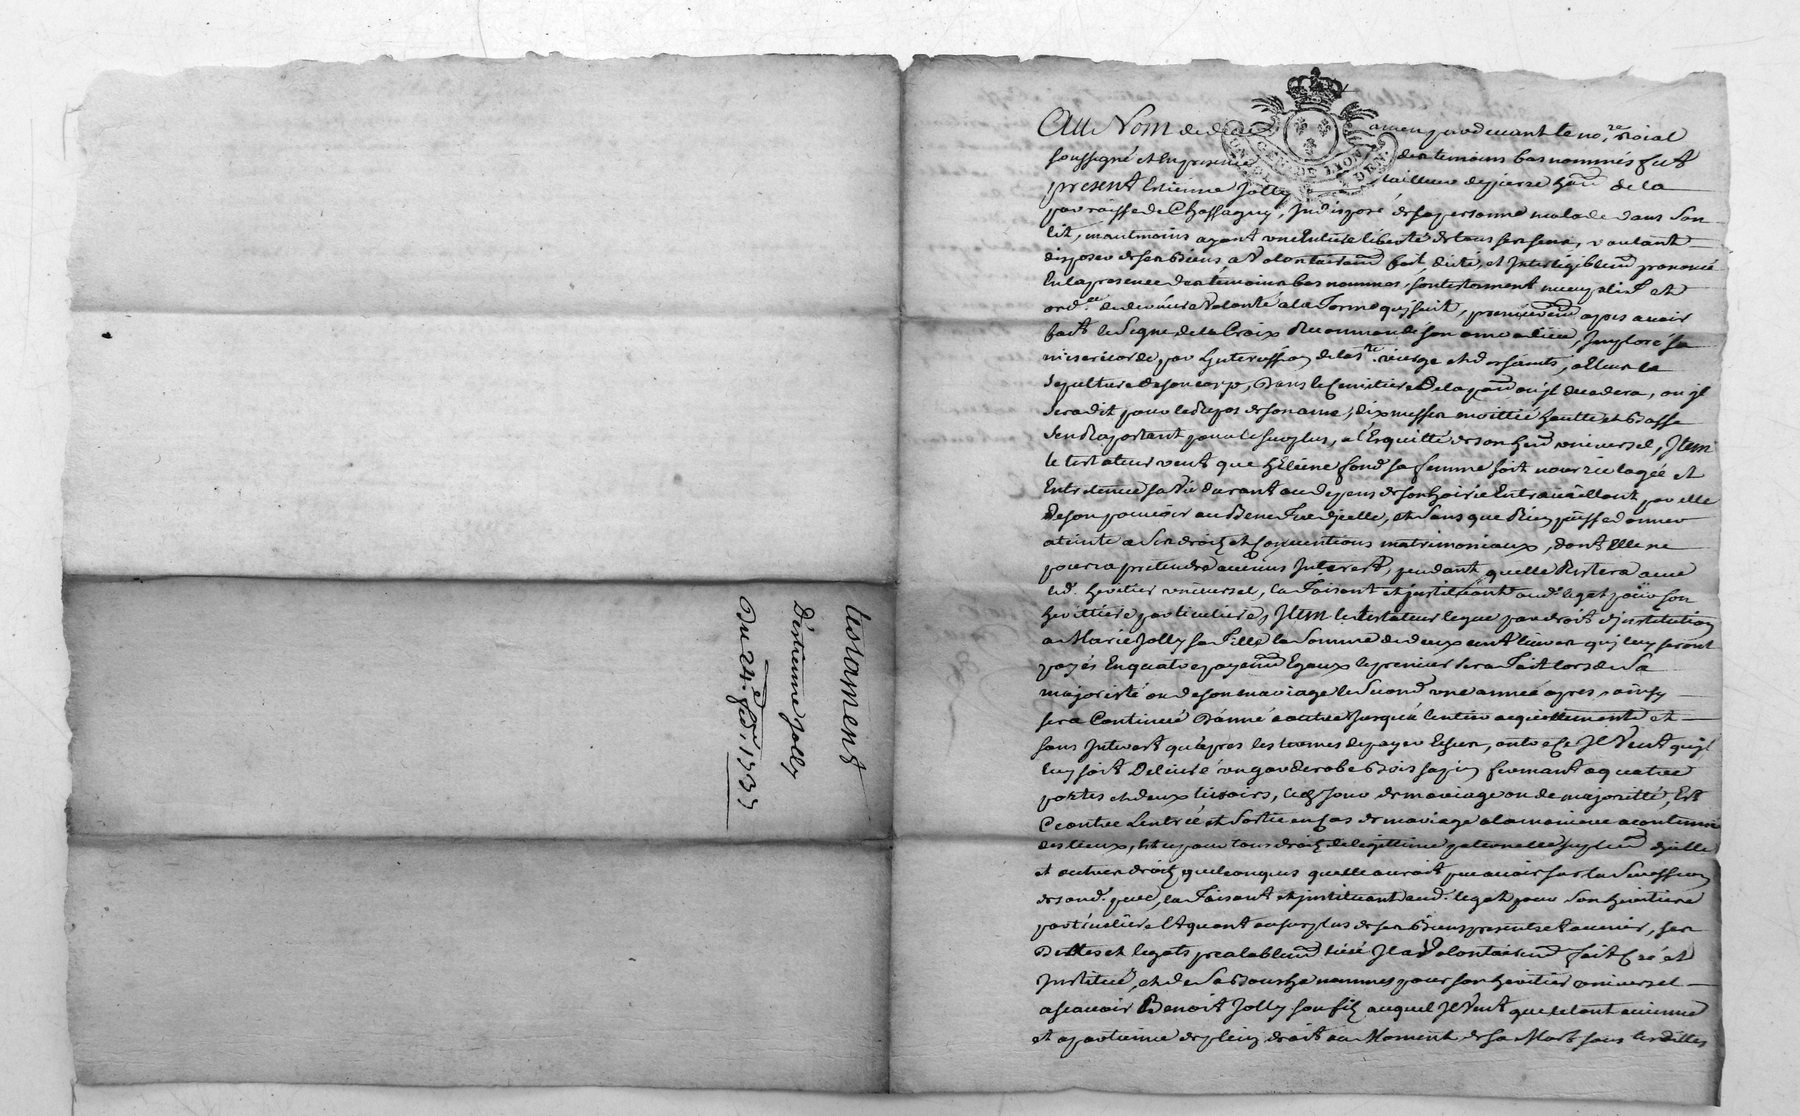 testament
D'éstienne Jolly
Du 24e 1737
Au Nom de dieu amen pardevant le no.re roial
soussigné et En presence des temoins bas nommés fut
present Estienne Jolly tailleur de pierre de la
parroisse de Chassagny, Indisposé de sa personne malade dans son
lit, neantmoins ayant une Entiere liberté de tous ses sens, voulant
disposer de ses Biens a Volontairemt fait, dicté, et Inteligiblemt prononcé
En la presence des témoins bas nommes, son testament nuncupatif et
ord.ce de derniere Volonté a la Forme qui suit, premieremt apres avoir
fait le Signe de la Croix Recommandé son ame a dieu, Imploré sa
misericorde par Lintercession de la ste vierge et des saints, a Eleu la
sepulture de son corps, Dans le Cemitiere de la parr ou jl decedera, ou jl
sera dit pour le Repos de son ame, dix messes moittié haulte et Basse
s'en Raportant pour le surplus, a l'Esquitté de son herit universel, Item
le testateur veut que héleine fond sa femme soit nourrie logée et
Entretenue sa Vie durant au depens de son hoirie En travaillant par elle
de son pouvoir au Benefice d'jcelle, et sans que Rien puisse donner
ateinte a ses droits et conventions matrimoniaux, dont Elle ne
poura pretendre aucuns Interest, pendant quelle Restera avec
led. heritier universel, la Faisant et jnstituant aud. legat pour son
heritiere particuliere, Item le testateur legue par droit d'jnstitution
a Marie Jolly sa Fille la Somme de deux cent livres qui luy seront
payés En quatre payemt Egaux le premier sera Fait lors de Sa
majorité ou de son mariage le Second une année apres, ainsy
sera Continué D'année a autre Jusqu'a l'entier aquittement et
sans Interest qu'apres les termes de payer Echeus, outre ce Jl Veut qu'jl
luy soit Delivré un garderobe Bois sapin fermant a quatre
portes et deux tiroirs, led. Jour de mariage ou de majoritté, Et
Encontre L'entrée et Sortie en cas de mariage a la maniere acoutumée
des lieux, Et ce pour tous droits de legitime paternelle suplemt d'jcelle
et autres droits quelconques quelle auroit peu avoir sur la Succession
de sond. pere, la Faisant et jnstituant aud. legat pour Son heritiere
particuliere Et quant au surplus de ses Biens presents et avenir, ses
Dettes et legats prealablemt levé Jl a Volontairemt fait Créé et
Institué, et de Sa Bouche nommé pour son heritier universel
ascavoir Benoit Jolly son fils auquel Jl Veut que le tout avienne
et apartienne de plein droit au Moment de sa Mort sous lesdittes